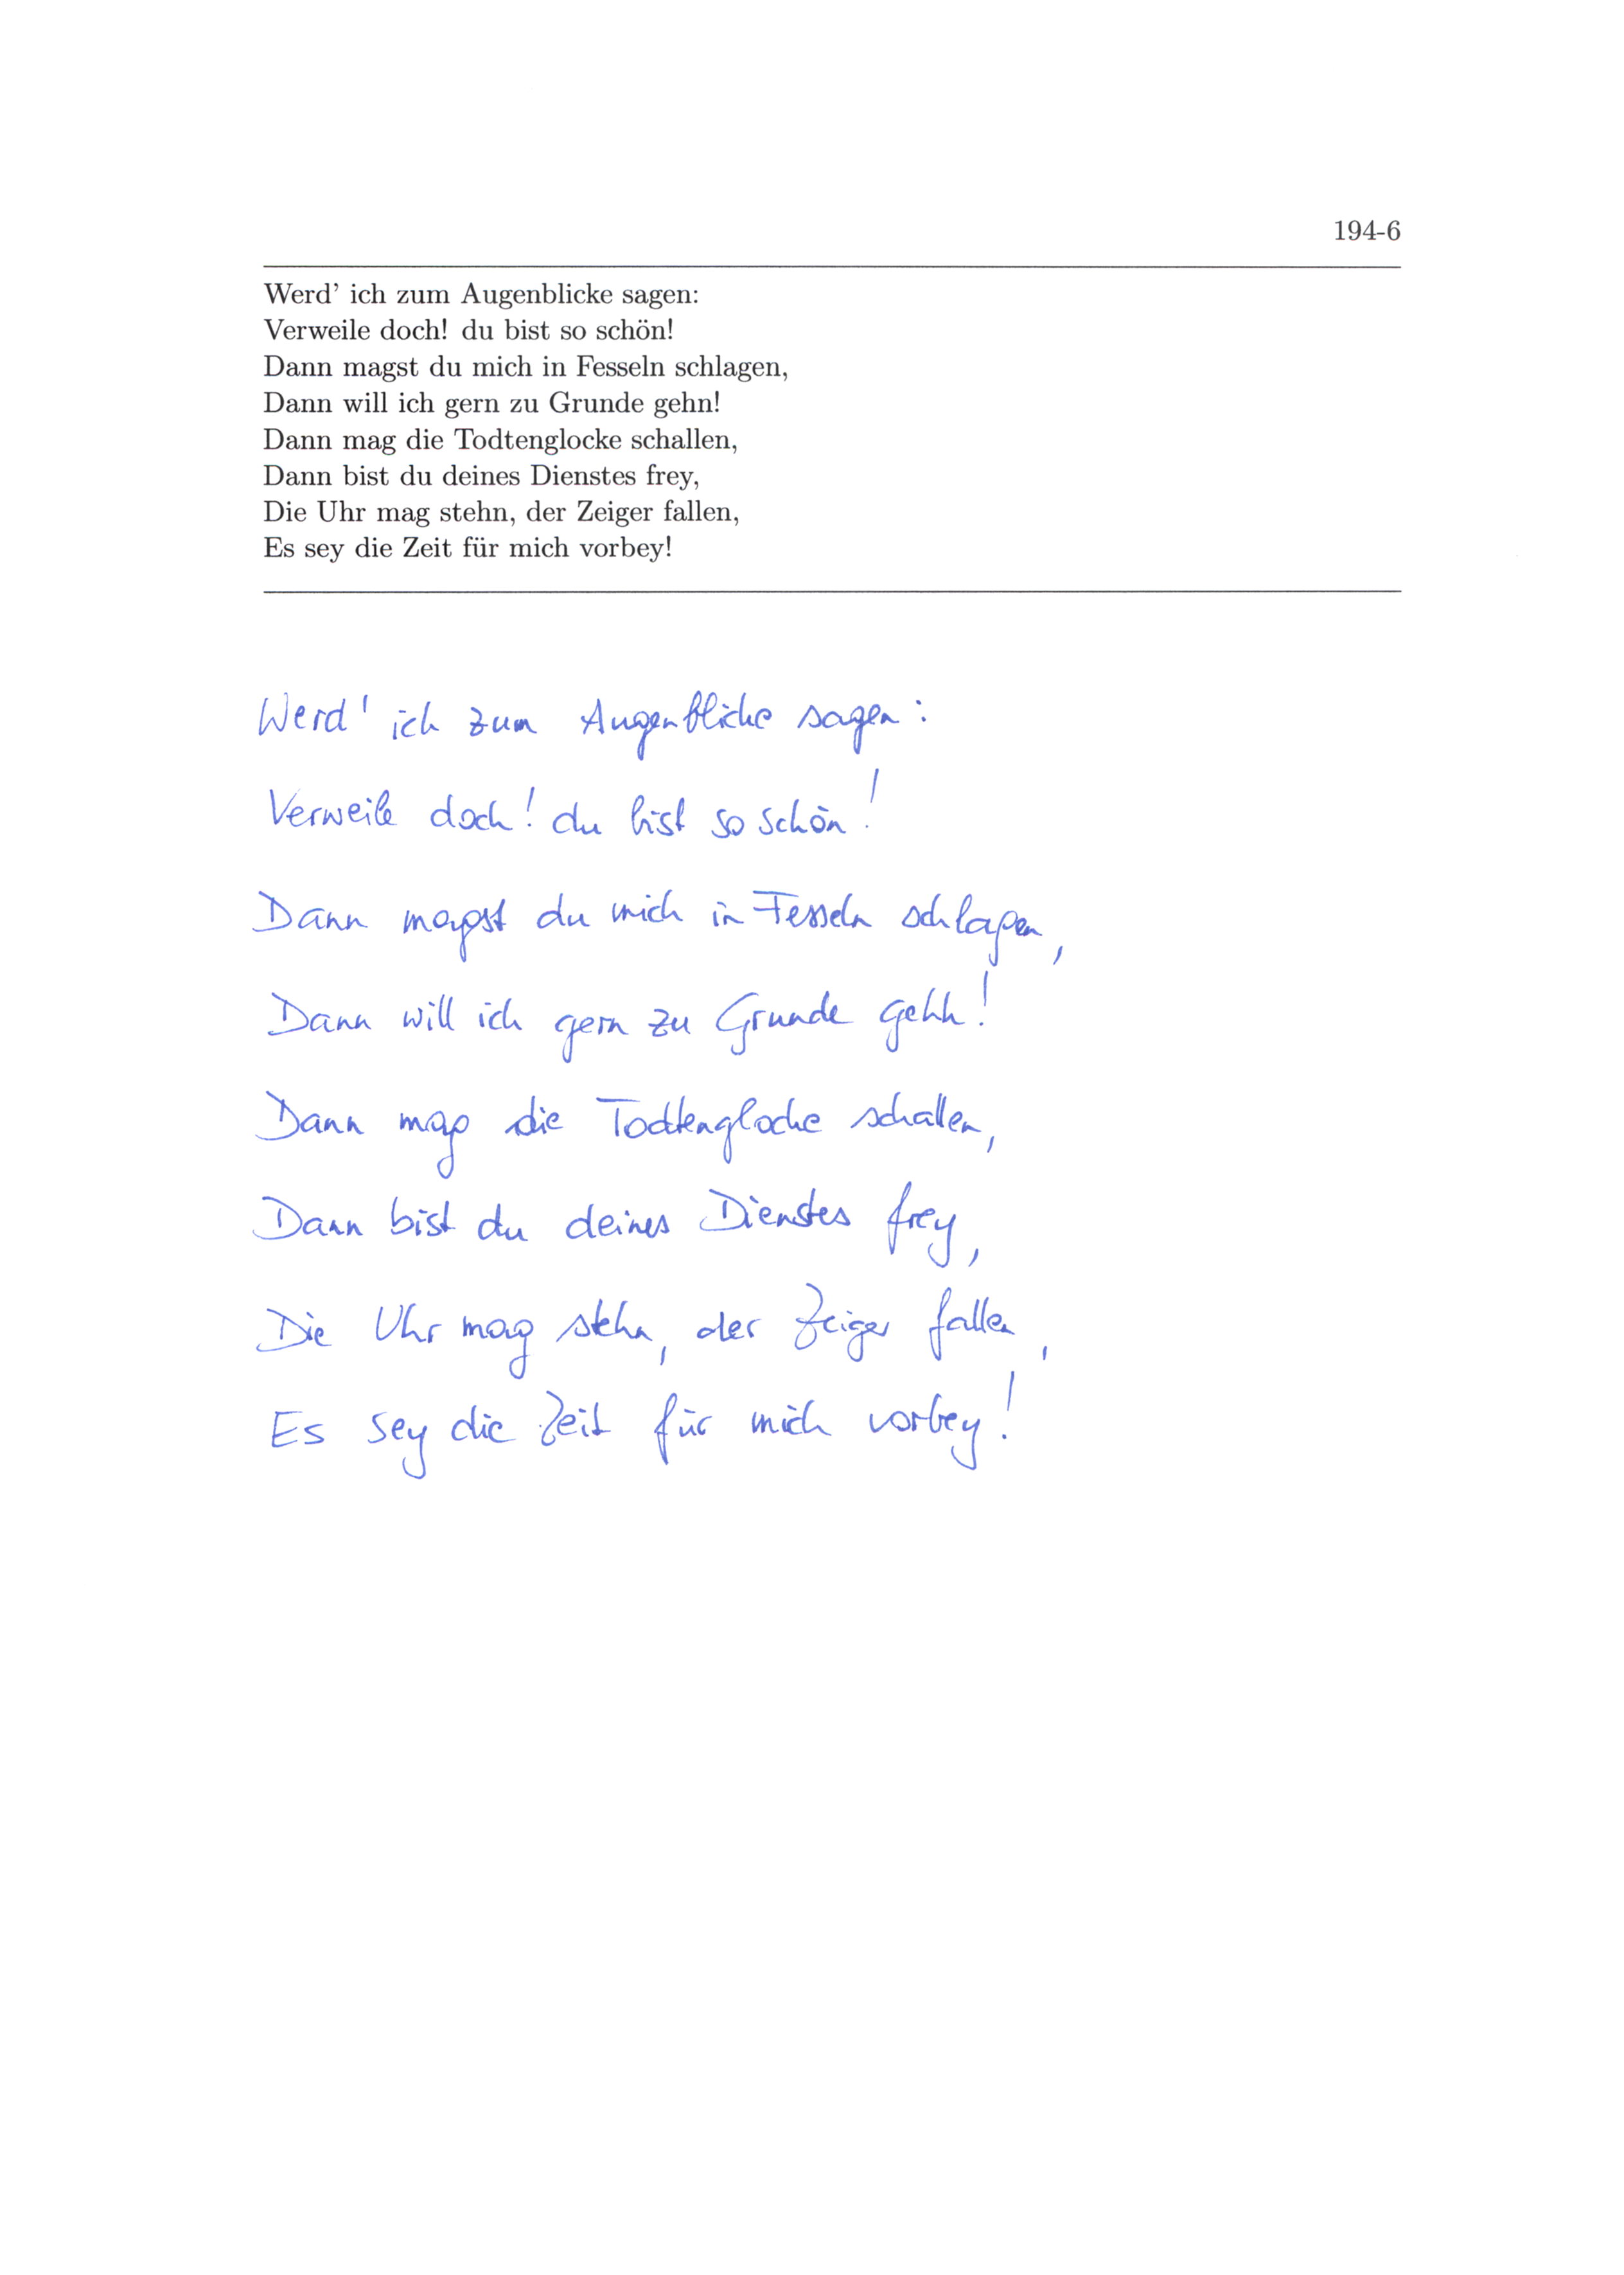 194-6
Werd' ich zum Augenblicke sagen:
Verweile doch! du bist so schön!
Dann magst du mich in Fesseln schlagen,
Dann will ich gern zu Grunde gehn!
Dann mag die Todtenglocke schallen,
Dann bist du deines Dienstes frey,
Die Uhr mag stehn, der Zeiger fallen,
Es sey die Zeit für mich vorbey!
Werd' ich zum Augenblicke sagen:
Verweile doch! du bist so schön!
Dann magst du mich in Fesseln schlagen,
Dann will ich gern zu Grunde gehn!
Dann mag die Todtenglocke schallen,
Dann bist du deines Dienstes frey,
Die Uhr mag stehn, der Zeiger fallen,
Es sey die Zeit für mich vorbey!